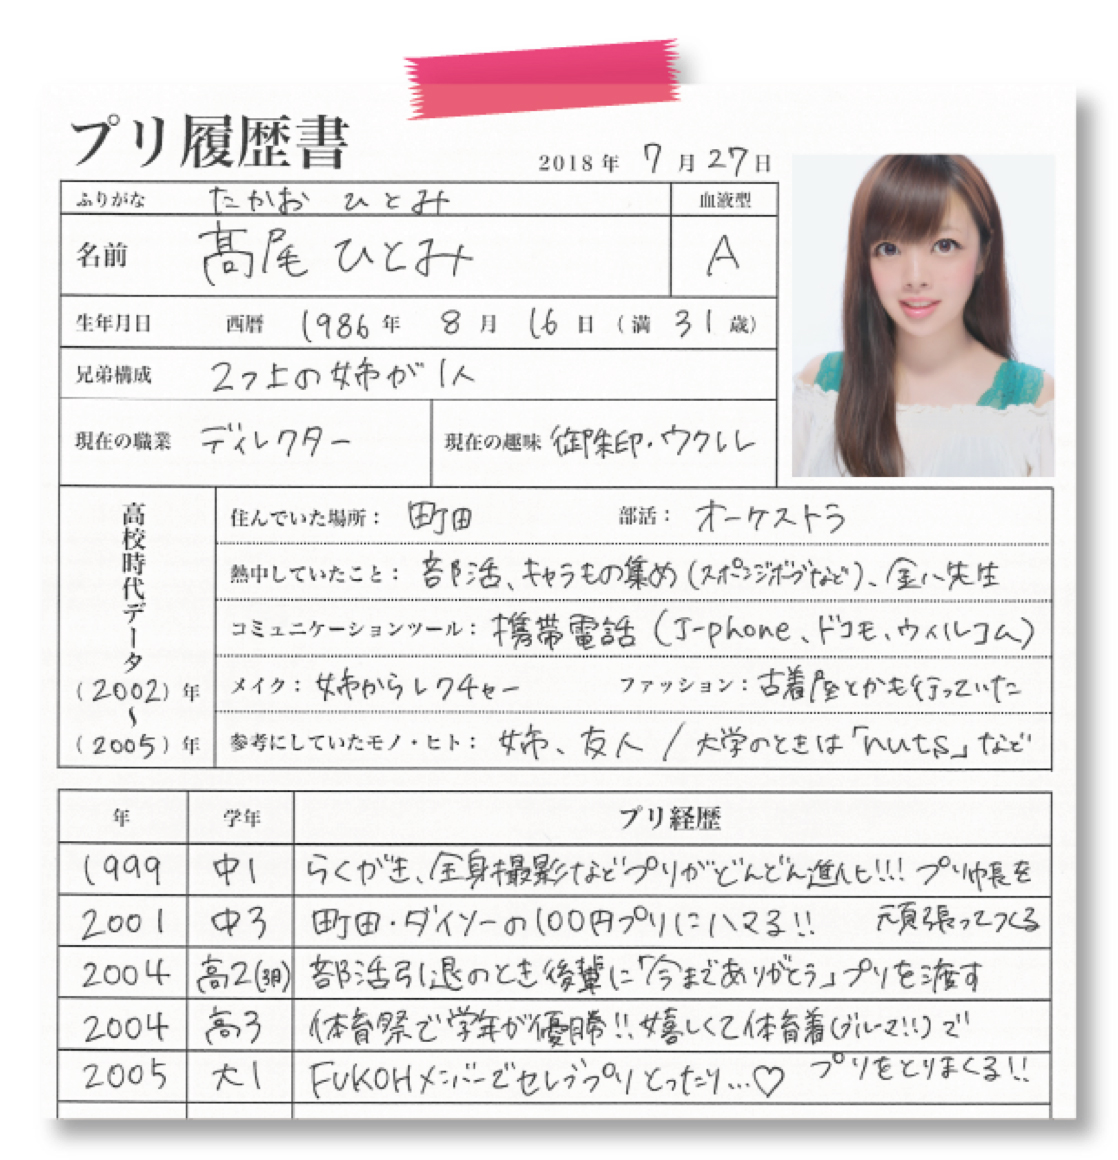 プリ履歴書
2018年 7月27日
ふりがな たかお ひとみ 血液型
名前 髙尾 ひとみ A
生年月日 西暦 1986年 8月 16日 (満 31歳)
兄弟構成 2つ上の姉が1人
現在の職業 ディレクター 現在の趣味 御朱印・ウクレレ
高校時代データ
(2002)年
〜
(2005)年
住んでいた場所: 町田 部活: オーケストラ
熱中していたこと: 部活、キャラもの集め(スポンジボブなど)、金八先生
コミュニケーションツール: 携帯電話(J-phone、ドコモ、ウィルコム)
メイク: 姉からレクチャー ファッション: 古着屋とかも行っていた
参考にしていたモノ・ヒト: 姉、友人 / 大学のときは「nuts」など
年 学年 プリ経歴
1999 中1 らくがき、全身撮影などプリがどんどん進化!!! プリ帳を
頑張ってつくる
2001 中3 町田・ダイソーの100円プリにハマる!!
2004 高2(3月) 部活引退のとき後輩に「今までありがとう」プリを渡す
2004 高3 体育祭で学年が優勝!! 嬉しくて体育着(ブルマ!!)で
プリをとりまくる!!
2005 大1 FUKOHメンバーでセレブプリとったり…♡